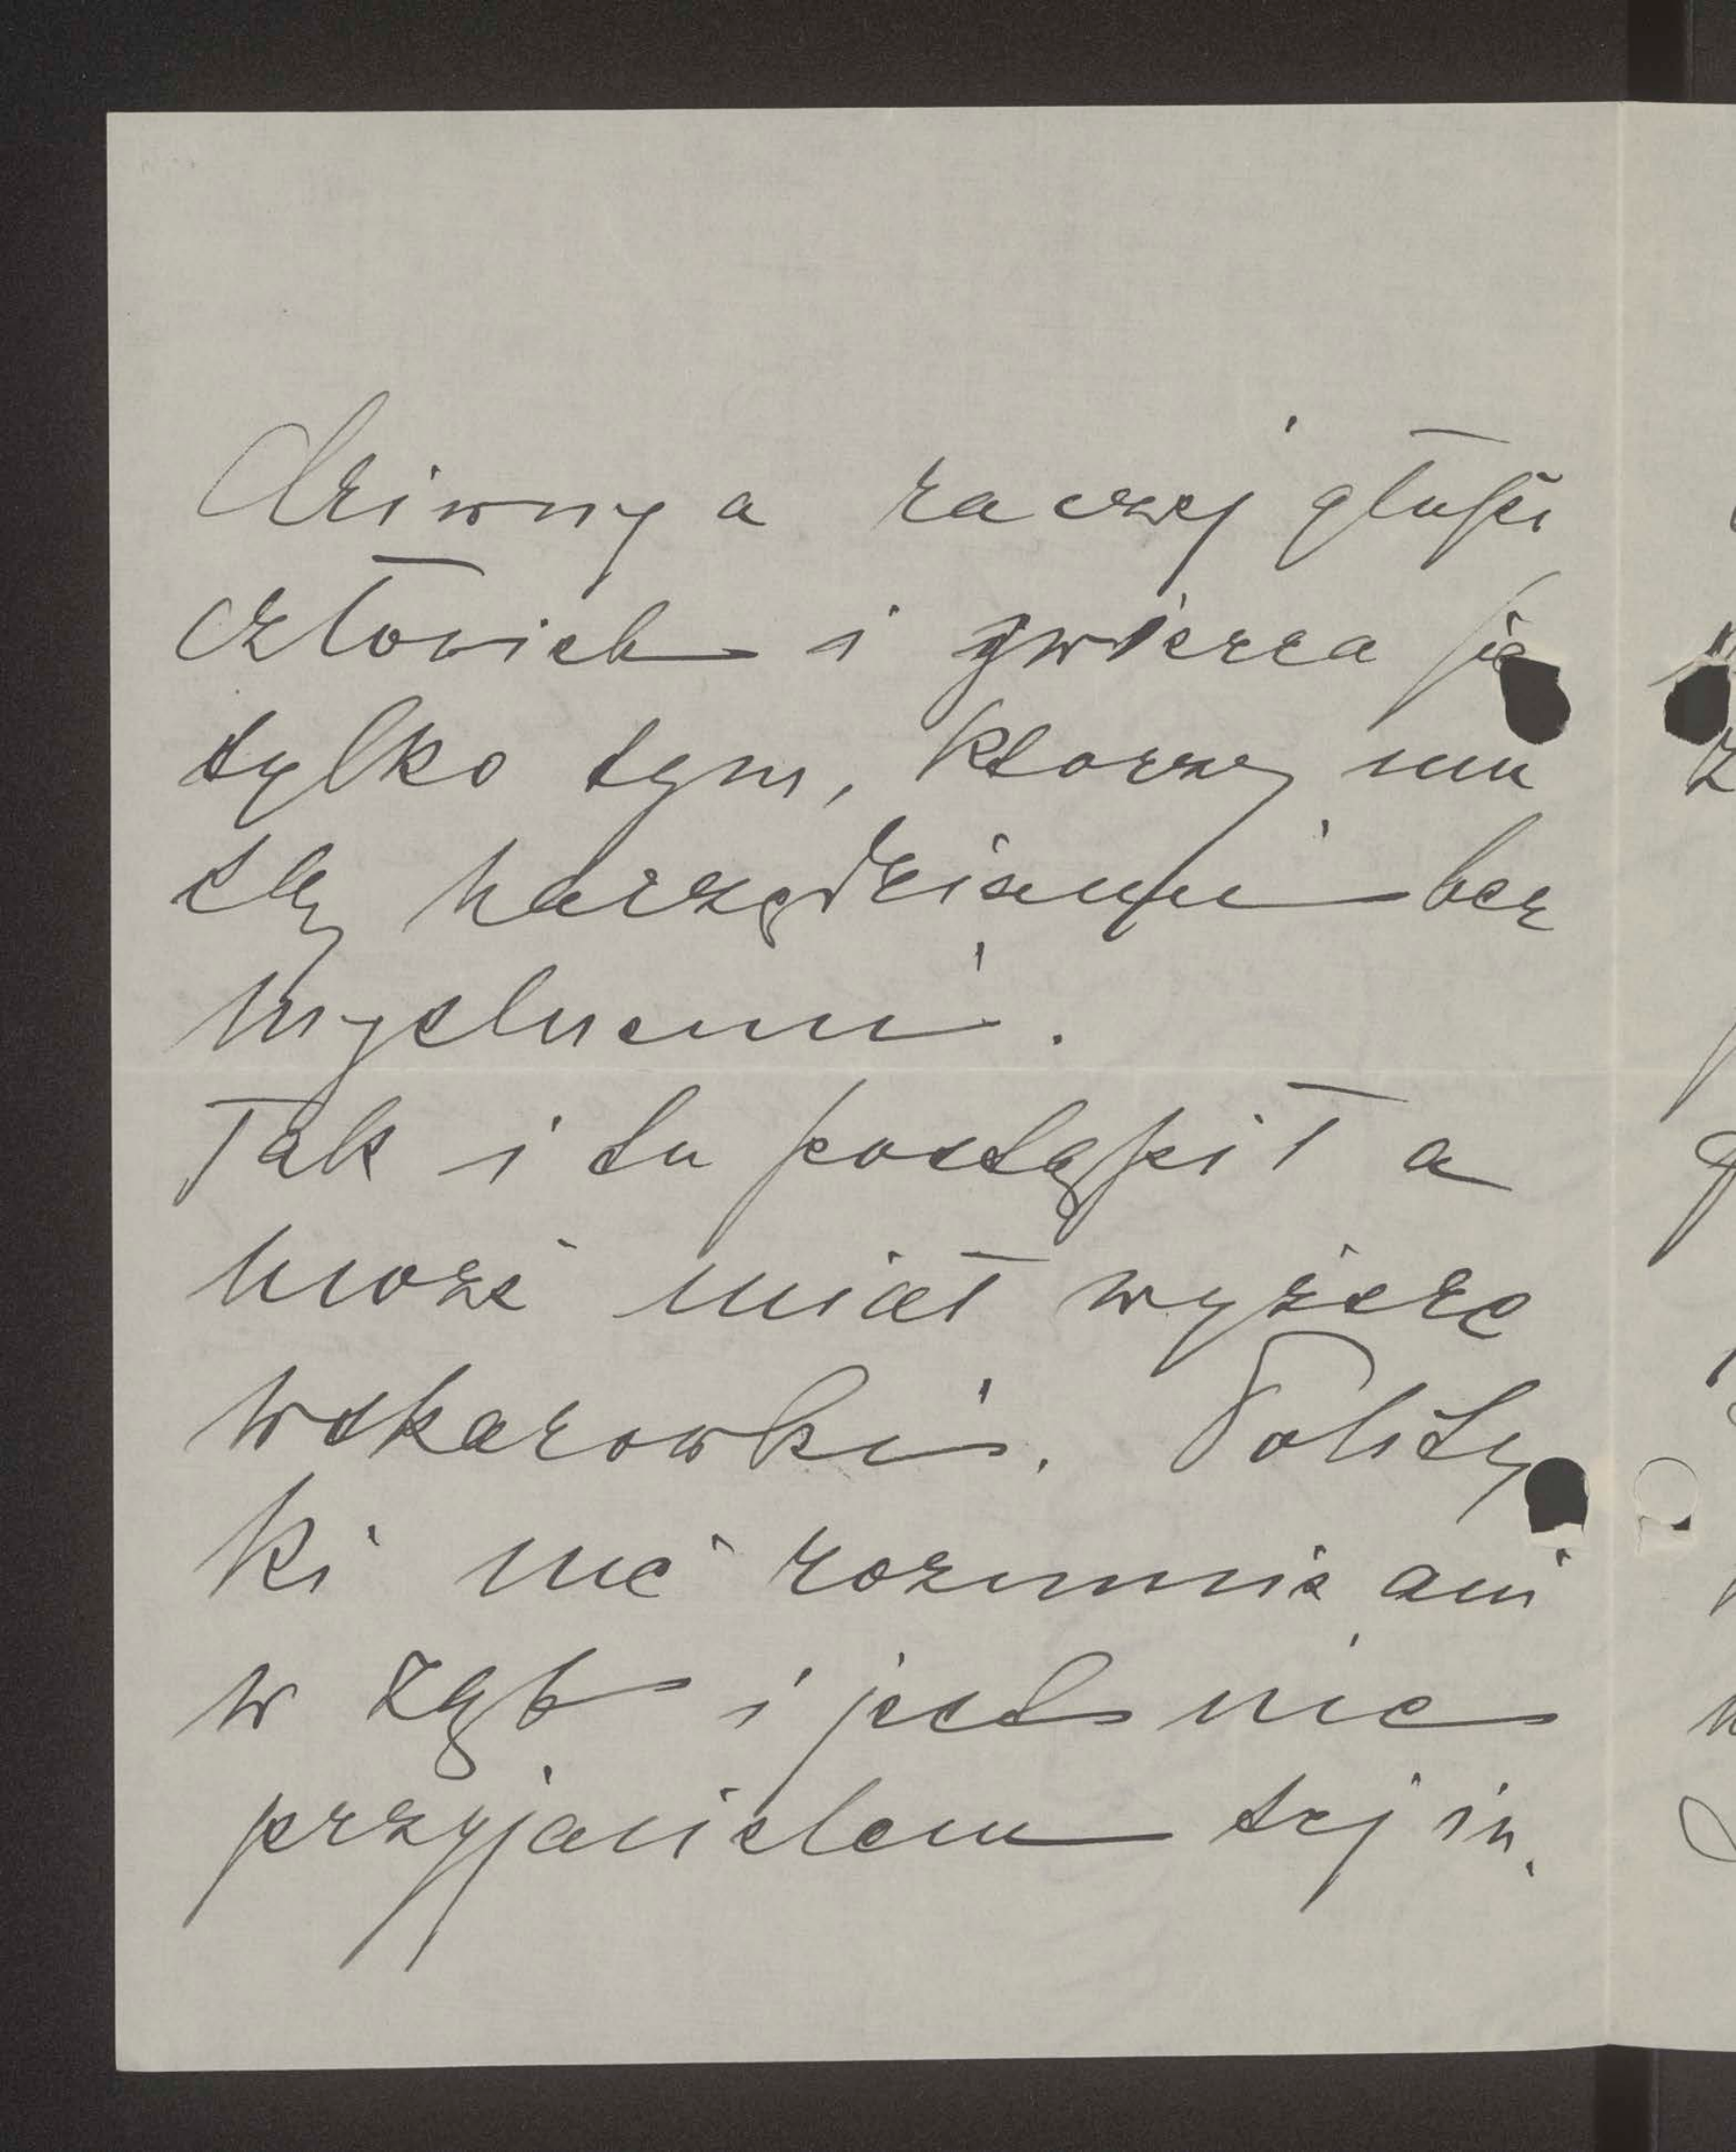 Dziwny a raczej głupi
człowiek i zwierza się
tylko tym, ktorzy mu
są narzędziami bez
myslnemi.
Tak i tu postąpił a
może miał wyższe
wskazowki. Polity
ki nie rozumie ani
w ząb i jest nie
przyjacielem tej in.